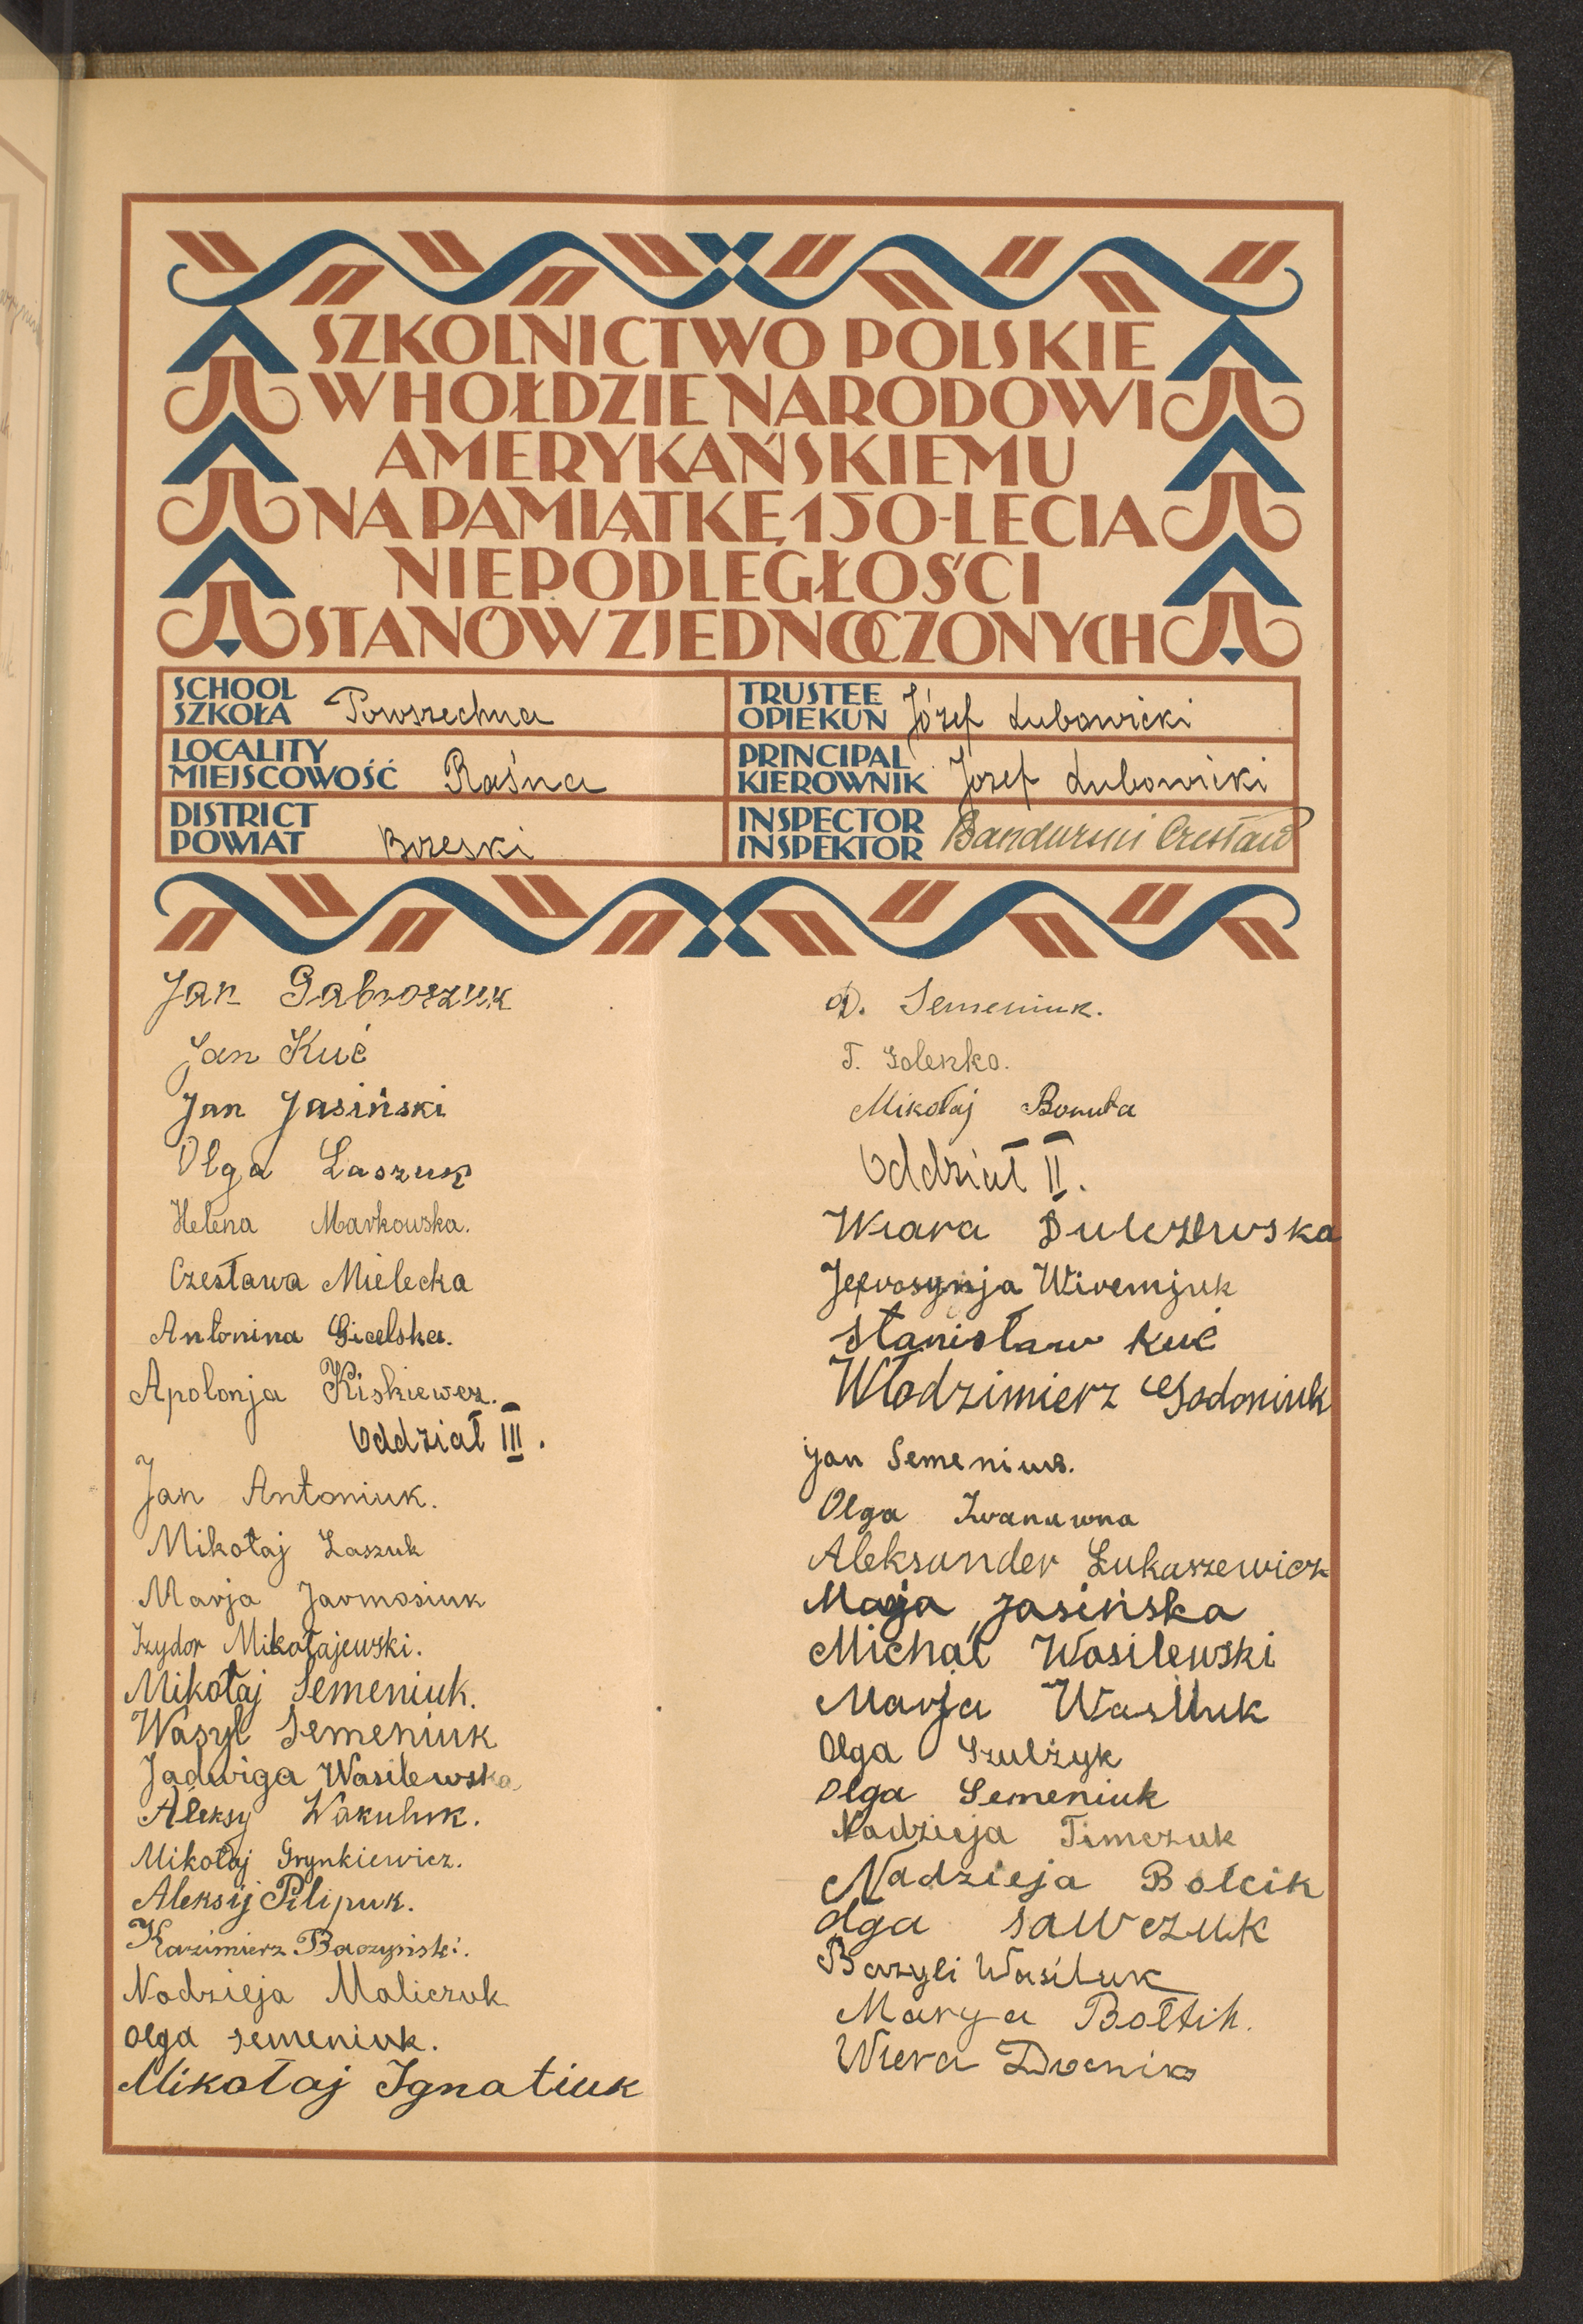 SZKOLNICTWO POLSKIE
W HOŁDZIE NARODOWI
AMERYKAŃSKIEMU
NA PAMIĄTKĘ 150-LECIA
NIEPODLEGŁOŚCI
STANÓW ZJEDNOCZONYCH
SCHOOL
SZKOŁA Powszechna
LOCALITY
MIEJSCOWOŚĆ Raśna
DISTRICT
POWIAT Brzeski
TRUSTEE
OPIEKUN Józef Lubowicki
PRINCIPAL
KIEROWNIK Józef Lubowicki
INSPECTOR
INSPEKTOR Bandurski Czesław
Jan Gabroszuk
Jan Kuć
Jan Jasiński
Olga Laszuk
Helena Markowska.
Czesława Mielecka
Antonina Gicelska.
Apolonja Kiskiewcz.
Oddział III.
Jan Antoniuk.
Mikołaj Łaszuk
Marja Jarmosiuk
Izydor Mikołajewski.
Mikołaj Semeniuk.
Wasyl Semeniuk
Jadwiga Wasilewska
Aleksy Wakuluk.
Mikołaj Grynkiewicz.
Aleksij Pilipuk.
Kazimierz Baczyński.
Nadzieja Maliczuk
Olga semeniuk.
Mikołaj Ignatiuk
Semeniuk.
T. Golenko.
Mikołaj Bonuta
Oddział II.
Wiara Dulczewska
Jefrosynja Wiremjuk
Stanisław kuć
Włodzimierz Godoniuk
Jan Semeniuk.
Olga Iwanuwna
Aleksander Łukaszewicz
Marja Jasińska
Michał Wasilewski
Marja Wasiluk
Olga Szulżyk
Olga Semeniuk
Nadzieja Timczuk
Nadzieja Bołcik
Olga Sawczuk
Bazyli Wasiluk
Marya Bołtik.
Wiera